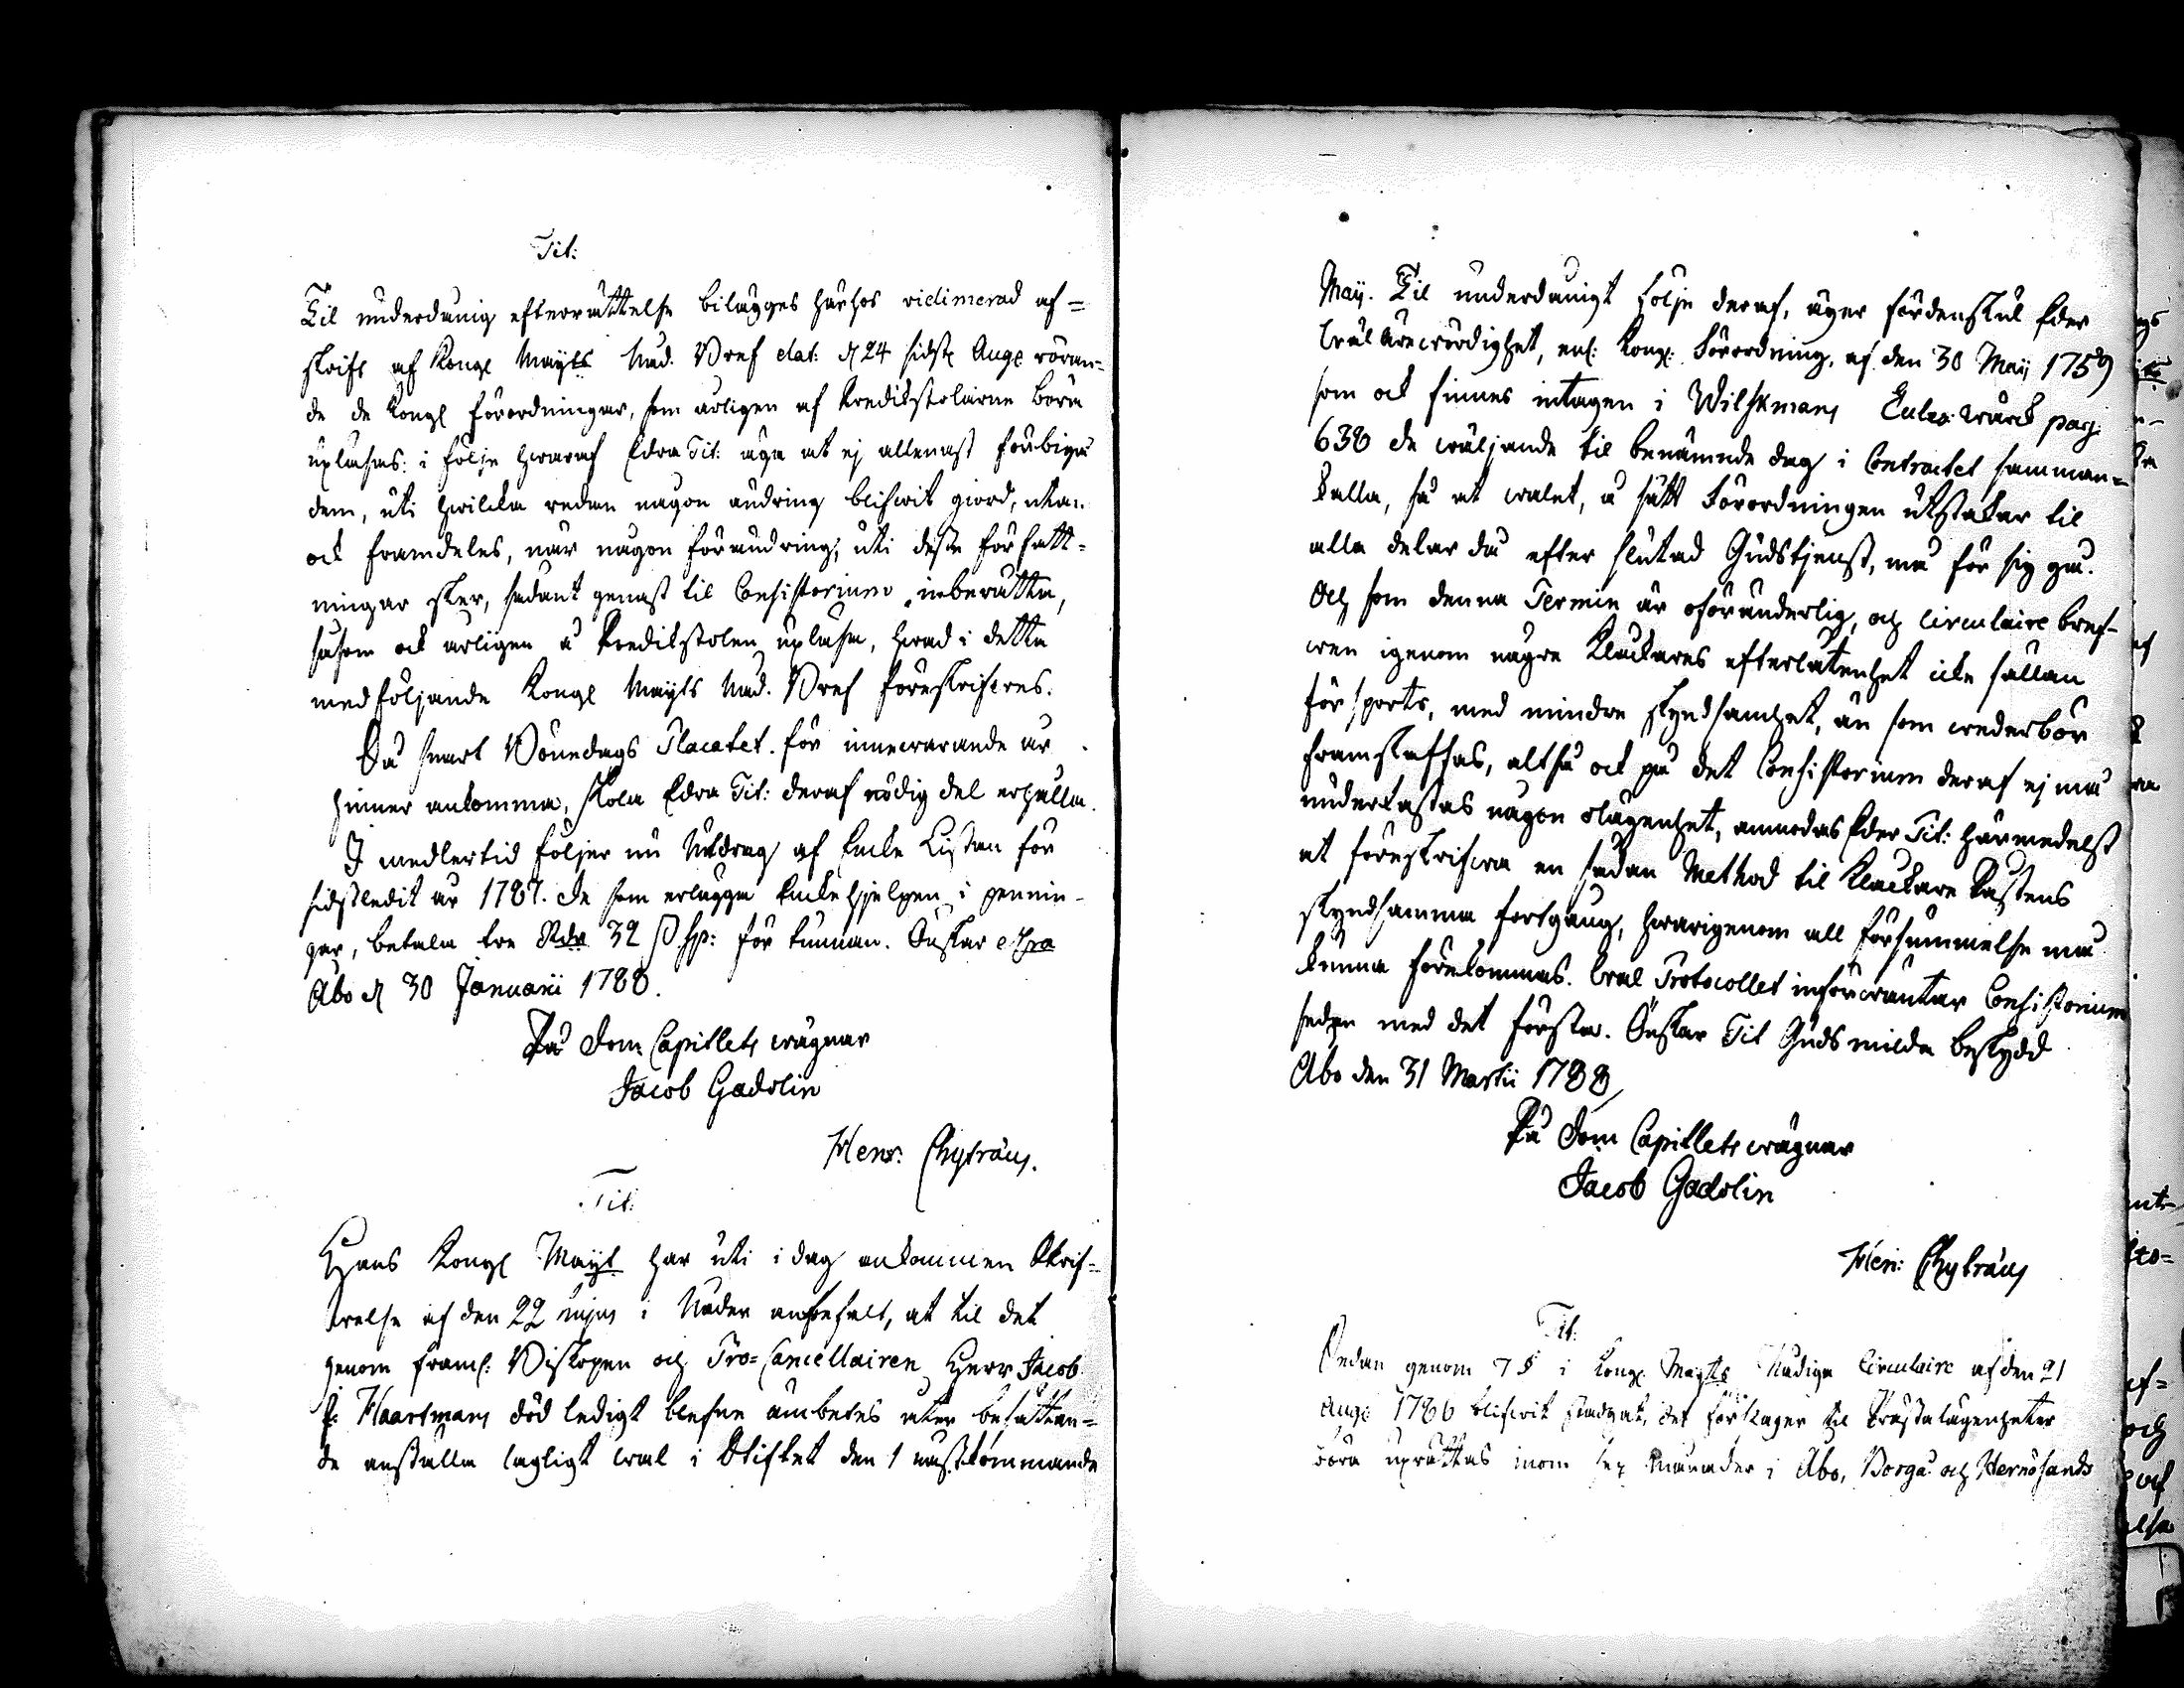 Tit:
Til underdånig efterrättelse bilägges härhos vidimerad af=
skrift af Kongl Mayts Nåd. Bref dat: d 24 sidstl Aug: röran=
de de Kongl förordningar, som årligen af Predikstolarne böra
upläsas: i följe hwaraf Edra Tit: äga at ej allenast förbigå
dem, uti hwilcka redan någon ändring blifwit giord, utan
ock framdeles, när någon förändring, uti desse författ=
ningar sker, sådant genast til Consistorium inberätta,
såsom ock årligen å Predikstolen upläsa, hwad i detta
medföljande Kongl Mayts Nåd. Bref föreskrifwes.
Så snart Bönedags Placatet för innewarande år
hinner ankomma, skola Edra Tit: deraf nödig del erhålla.
I medlertid följer nu Utdrag af Encke Listan för
sidstledit år 1787. De som erlägga Enckehjelpen i pennin-
gar, betala tre Rdr 32 ß sp: för tunnan. Önskar etc
Åbo d 30 Januarii 1788.
På Dom Capitlets wägnar
Jacob Gadolin
Henr: Chyträus.
Tit:
Hans Kongl Mayt har uti i dag ankommen Skrif=
welse af den 22 hujus i Nåder anbefalt, at til det
genom framl: Biskopen och Pro=Cancellairen Herr Jacob
Haartmans död ledigt blefne ämbetes åter besättan=
de anställa lagligt wal i Stiftet den 1 nästkommande
Maij. Til underdånigt följe deraf, äger fördenskul Eder
wälärewördighet, enl: Kongl: Förordning, af den 30 Maij 1759
som ock finnes intagen i Wilskmans Eccles: wärck pag:
638 de wäljande til benämnde dag i Contractet samman=
kalla, så at walet, å sätt Förordningen utstakar til
alla delar då efter slutad Gudstjenst, må för sig gå.
Och som denna Termin är oföränderlig, och circulaire bref-
wen igenom någre Klockares efterlåtenhet icke sällan
försports, med mindre skyndsamhet, än som wederbör
framskaffas, altså ock på det Consistorium deraf ej må
underkastas någon olägenhet, anmodas Eder Tit: härmedelst
at föreskrifwa en sådan Method til Klockare Kastens
skyndsamma fortgång, hwarigenom all försummelse må
kunna förekommas. Wal Protocollet införwäntar Consistorium
sedan med det första. Önskar Tit Guds milda beskydd
Åbo den 31 Martii 1788
På Dom Capitlets wägnar
Jacob Gadolin
Hen: Chyträus
Tit:
Sedan genom 7 § i Kongl Mayts Nådiga Circulaire af den 21
Aug: 1786 blifwit stadgat, det förslager til Prästalägenheter
böra uprättas inom sex månader i Åbo, Borgå och Hernösands